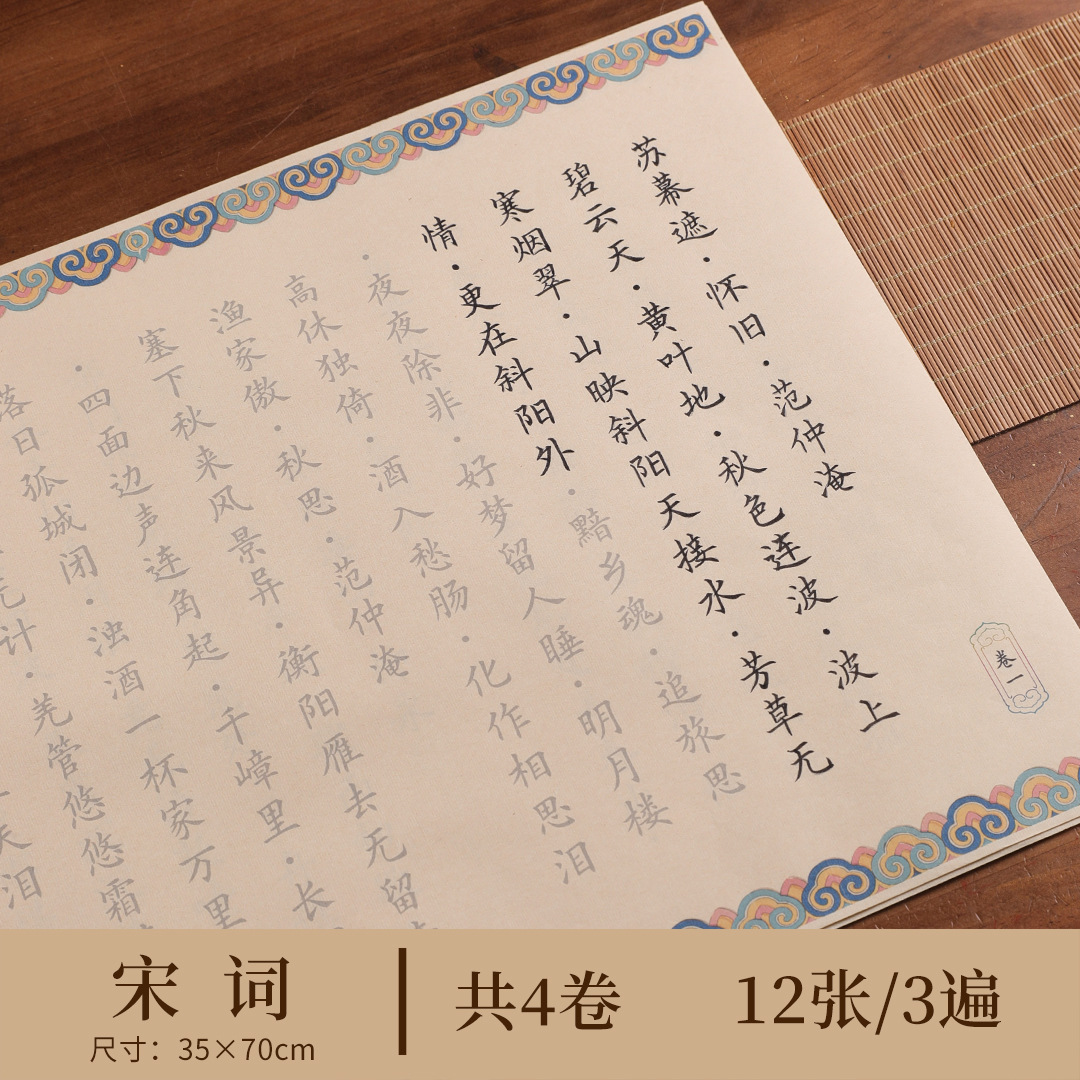 苏幕遮·怀旧·范仲淹
碧云天·黄叶地·秋色连波·波上
寒烟翠·山映斜阳天接水·芳草无
情·更在斜阳外·黯乡魂·追旅思
·夜夜除非·好梦留人睡·明月楼
高休独倚·酒入愁肠·化作相思泪
渔家傲·秋思·范仲淹
塞下秋来风景异·衡阳雁去无留
·四面边声连角起·千嶂里·长
落日孤城闭·浊酒一杯家万里
无计·羌管悠悠霜
夫泪
卷一
宋词
尺寸：35×70cm
共4卷
12张/3遍